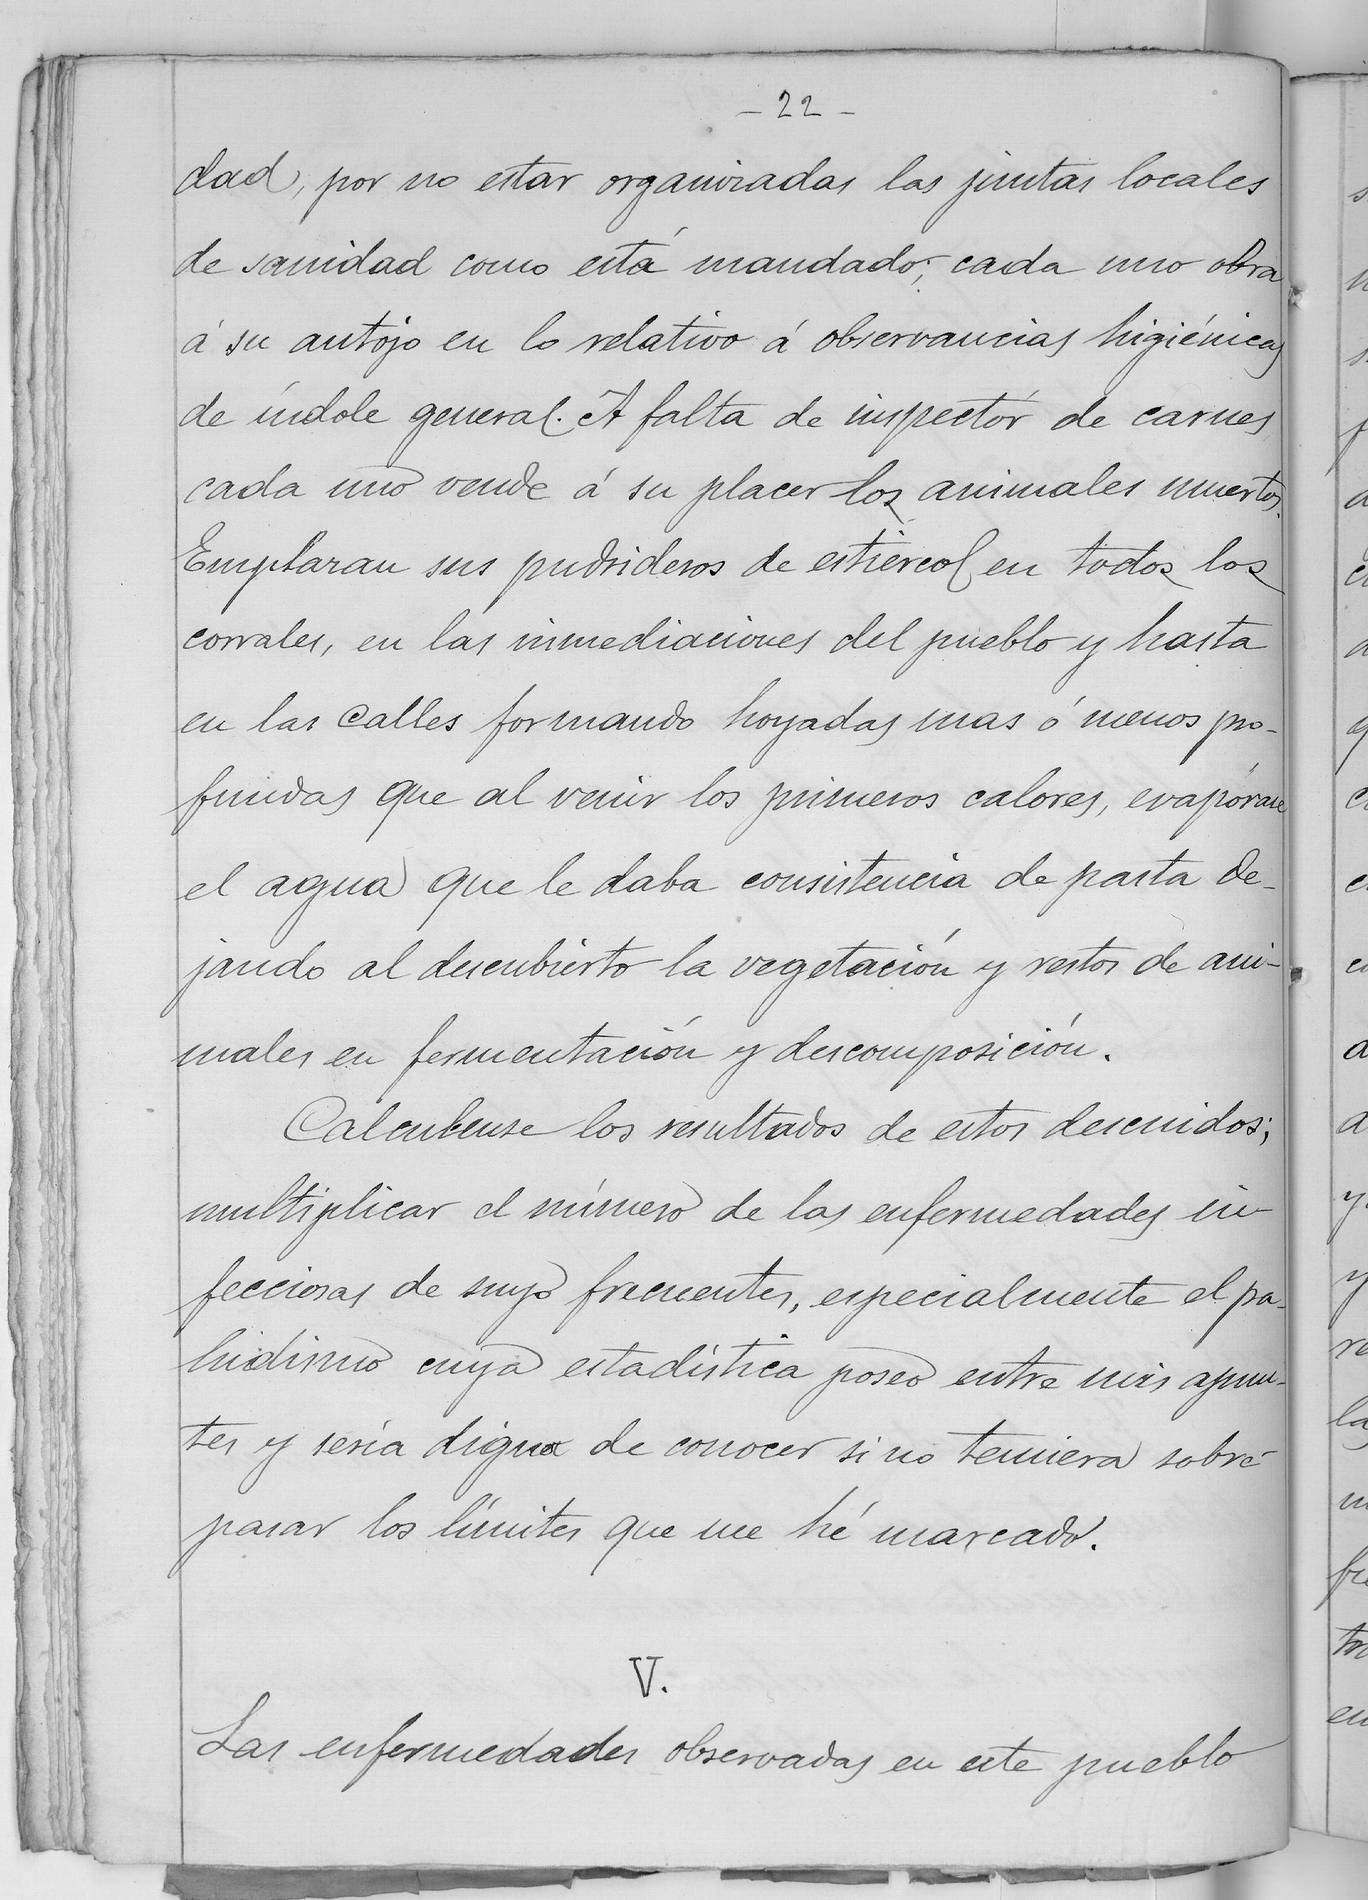 - 22 -
dad, por no estar organizadas las juntas locales
de sanidad como está mandado; cada uno obra
á su antojo en lo relativo á observancias higiénicas
de índole general. A falta de inspectór de carnes
cada uno vende á su placer los animales muertos.
Emplazan sus pudrideros de estiércol en todos los
corrales, en las inmediaciones del pueblo y hasta
en las calles formando hoyadas mas ó menos pro-
fundas que al venir los primeros calores, evapórase
el agua que le daba consistencia de pasta de-
jando al descubierto la vegetación y restos de ani-
males en fermentación y descomposición.
Calculense los resultados de estos descuidos;
multiplicar el número de las enfermedades in-
fecciosas de suyo frecuentes, especialmente el pa-
ludismo cuya estadística poseo entre mis apun-
tes y sería digna de conocer si no temiera sobre-
pasar los límites que me hé marcado.
V.
Las enfermedades observadas en este pueblo